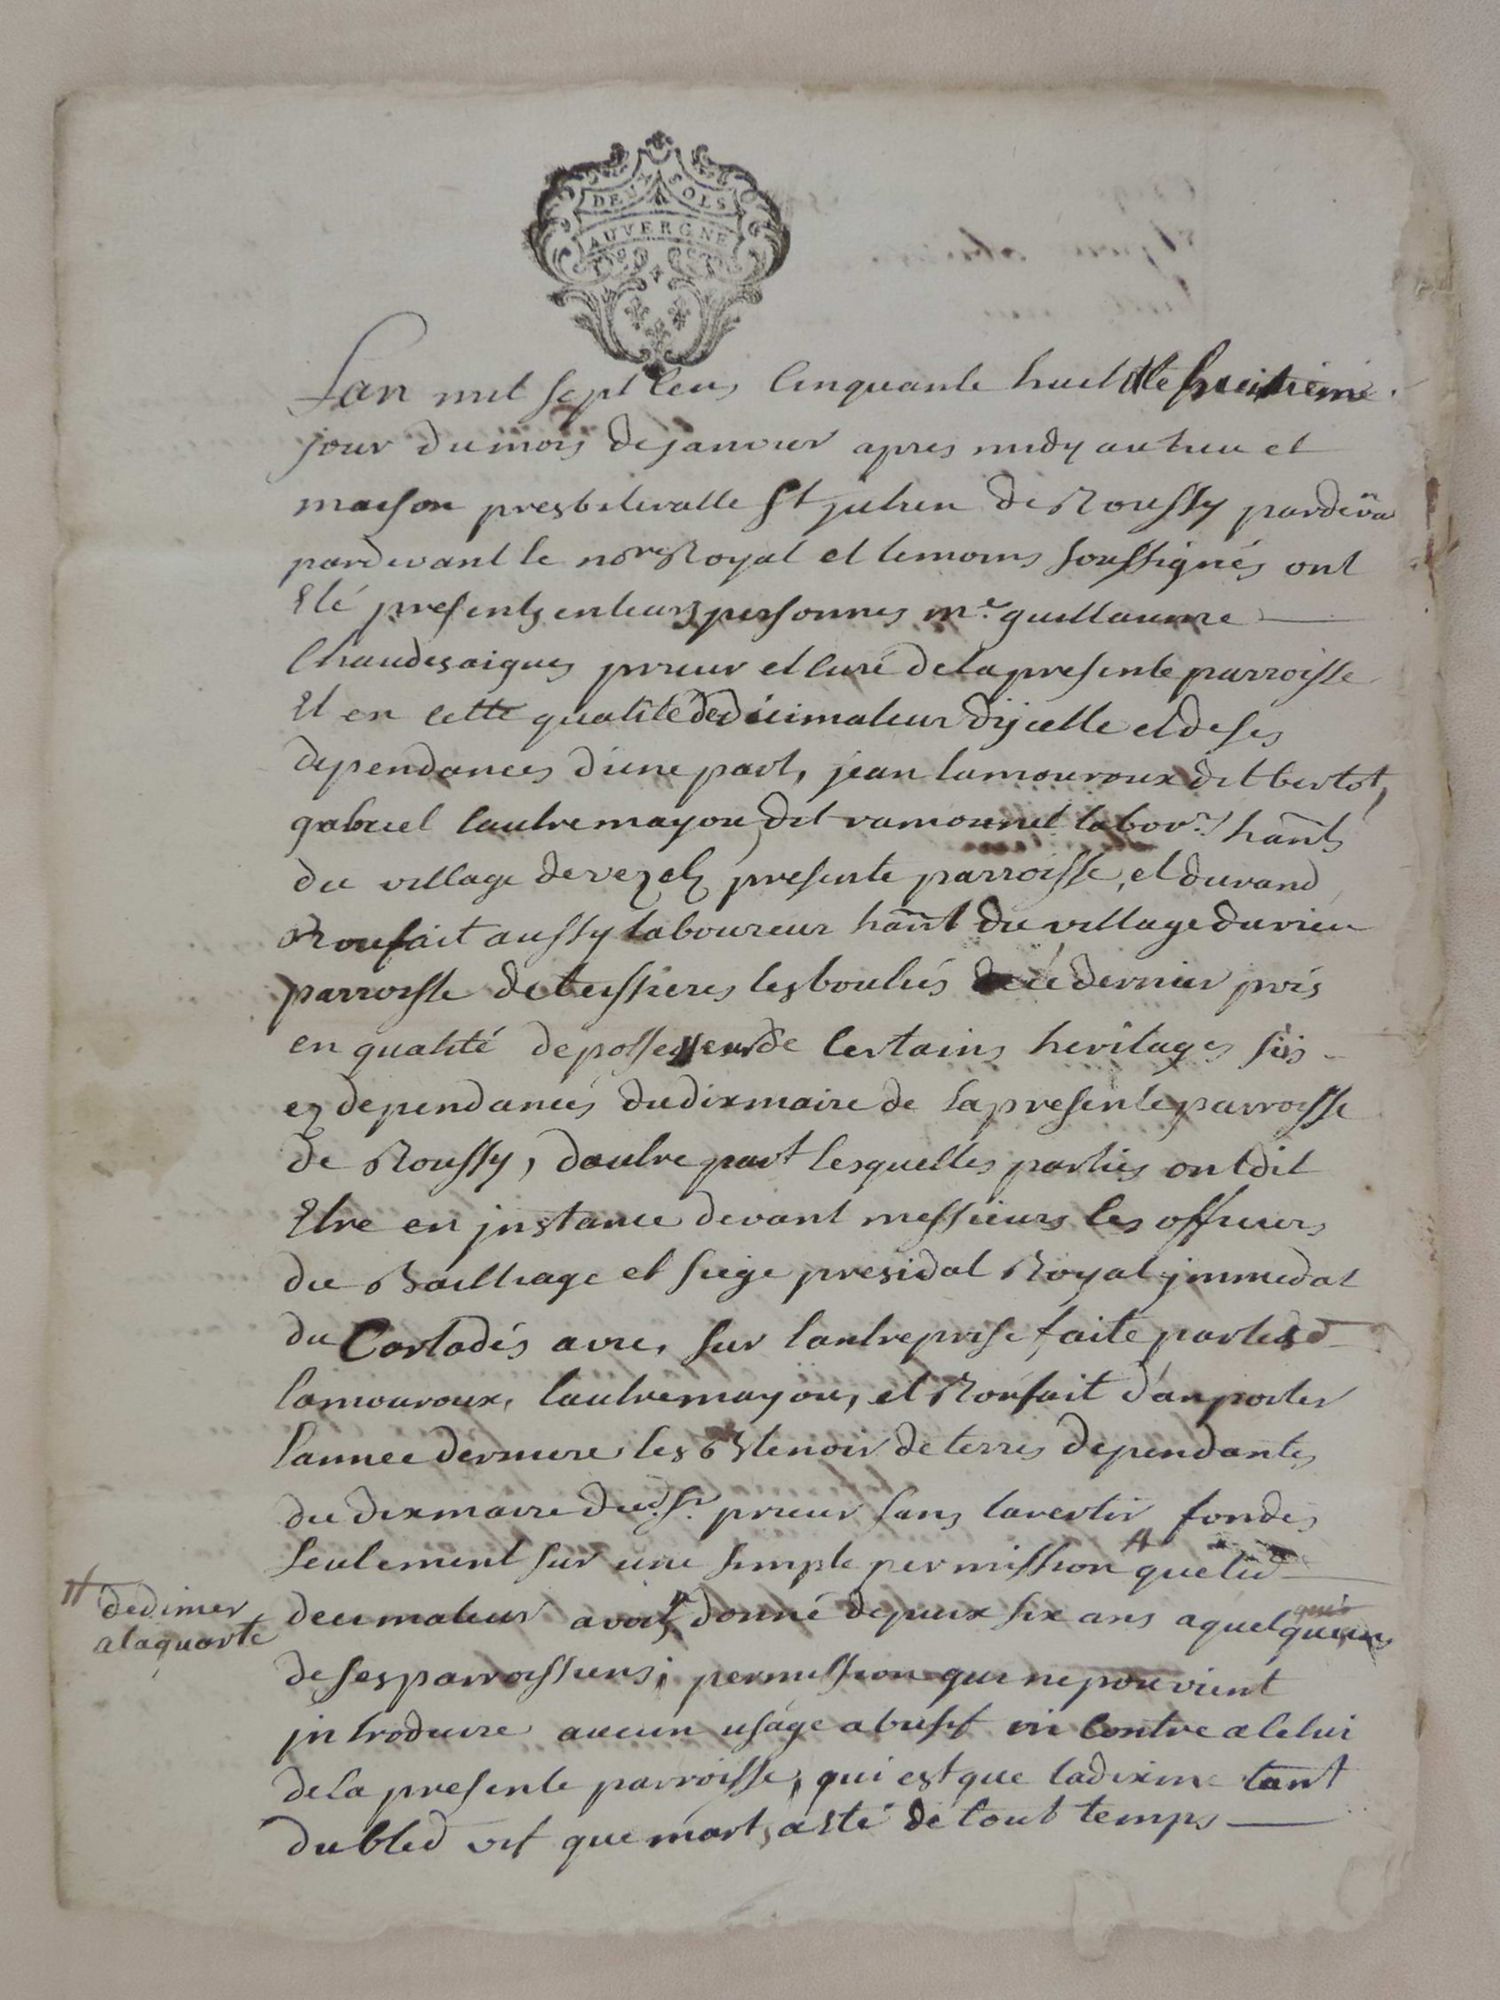 DEUX SOLS
AUVERGNE
Lan mil sept cens Cinquante huit & le huitieme
jour du mois de janvier apres midy au lieu et
maison presbiteralle St julien de Roussy pardeva
pardevant le nore Royal et temoins soussignés ont
Eté presents en leurs personnes mre. guillaume
Chaudesaigues prieur et curé de la presente parroisse
Et en cette qualité de decimateur dijcelle et de ses
dependances d'une part, jean lamouroux dit bertot,
gabriel lautremayou dit ramounet labovrs. hants
du village de vezels presente parroisse, et durand
Roufait aussy laboureur hant du village du rieu
parroisse de teissieres les bouliés ce dernier pris
en qualité de possesseur de Certains heritages sis
ez dependances du dixmaire de la presente parroisse
de Roussy, d'autre part lesquelles parties ont dit
Etre en jnstance devant messieurs les officiers
du Bailliage et siege presidal Royal jmmediat
du Carladés a vic, sur l'antreprise faite par lesd
lamouroux, lautremayou, et Roufait d'anporter
l'année derniere les bled noir de terres dependantes
du dixmaire dud. sr. prieur sans l'avertir fondés
seulement sur une simple permission # que led
# de dimer
a la quarte
decimateur avoit donné depuis six ans a quelques uns
de ses parroissiens; permission qui ne pouvient
jntroduire aucun usage abusif ni contre a celui
de la presente parroisse, qui est que la dixme tant
du bled vif que mort, a eté de tout temps